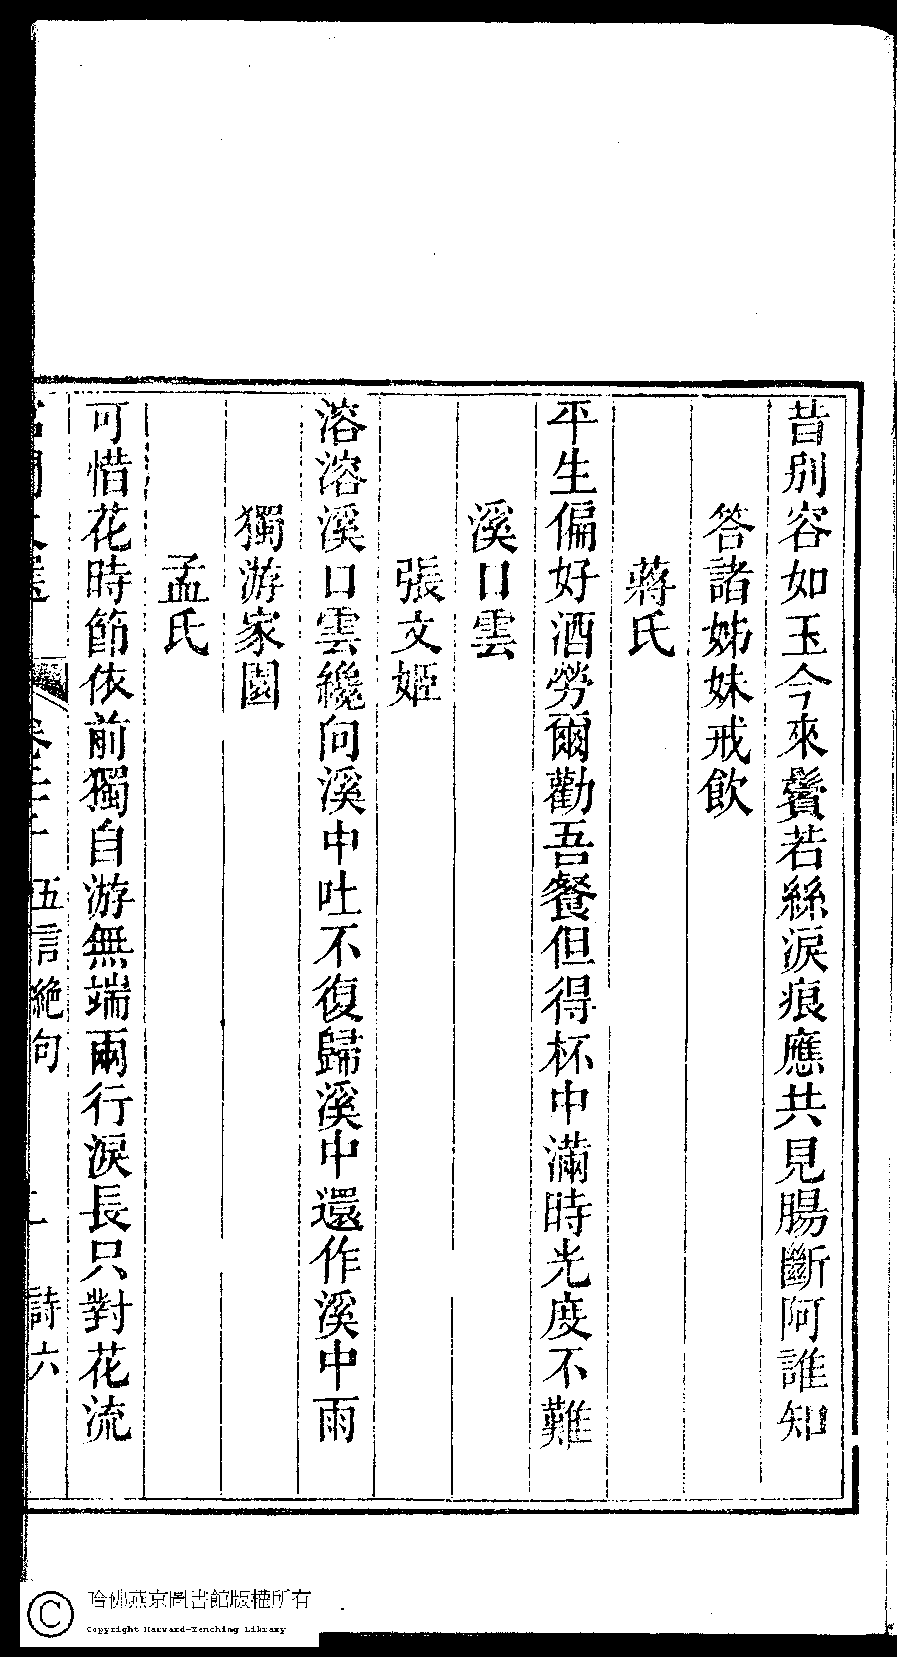 昔别容如玉今來鬢若絲淚痕應共見腸斷阿誰知
答諸姊妹戒飲
蔣氏
平生偏好酒勞爾勸吾餐但得杯中滿時光度不難
溪口雲
張文姬
溶溶溪口雲纔向溪中吐不復歸溪中還作溪中雨
獨游家園
孟氏
可惜花時節依前獨自游無端兩行淚長只對花流
伍言絶句
詩六
哈佛燕京圖書館版權所有
Copyright Harvard-Yenching Library